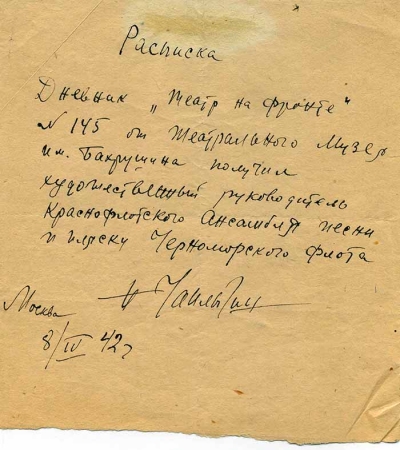 Расписка
Дневник „Театр на фронте"
N 145 от Театрального Музея
им. Бахрушина получил
художественный руководитель
Краснофлотского Ансамбля песни
и пляски Черноморского флота
Москва
8/IV 42г